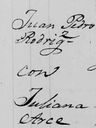 Juan Pedro
Rodrigz
con
Juliana
Arce